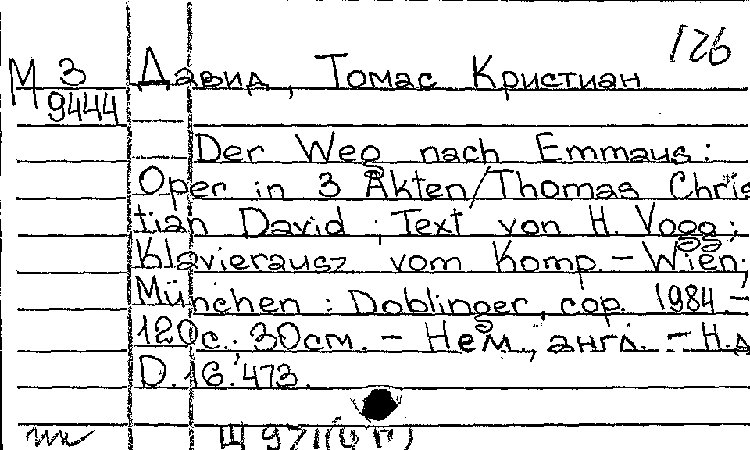 126
М 3 Давид, Томас Кристиан
9444
Der Weg nach Emmaus:
Oper in 3 Akten/Thomas Chris
tian David ; Text von H. Vogg;
Klavierausz. vom Komp. - Wien;
München : Doblinger, cop. 1984. -
120с.; 30см. - Нем., англ. - Н.д.
D.16.473.
Щ 971